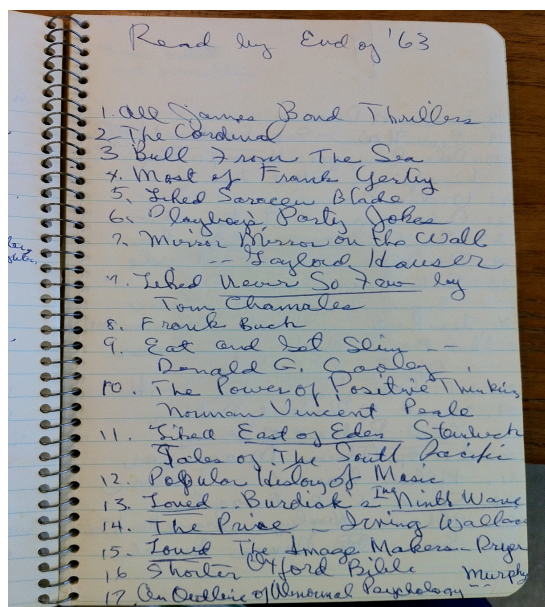 Read by End of '63
1. All James Bond Thrillers
2 The Cardinal
3 Bull From The Sea
4. Most of Frank Yerby
5. Liked Saracen Blade
6. Playboy's Party Jokes
7. Mirror Mirror on the Wall
-- Gaylord Hauser
7. Liked Never So Few by
Tom Chamales
8. Frank Buck
9. Eat and Get Slim --
Donald G. Cooley
10. The Power of Positive Thinking
Norman Vincent Peale
11. Liked East of Eden Steinbeck
Tales of The South Pacific
12. Popular History of Music
13. Loved - Burdick's The Ninth Wave
14. The Prize - Irving Wallace
15. Loved The Image Makers - Dryer
16 Shorter Oxford Bible
17. An Outline of Abnormal Psychology -- Murphy